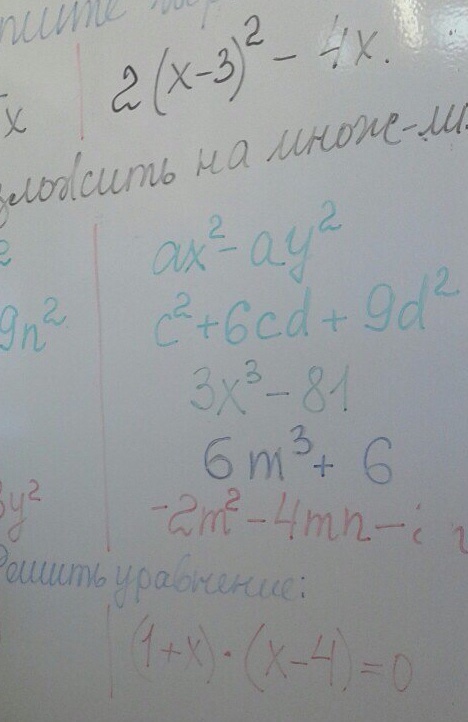 x | 2(x-3)² - 4x.
на множ-ли
ax² - ay²
9n² | c² + 6cd + 9d²
3x³ - 81
6m³ + 6
y² | -2m² - 4mn -
Решить уравнение:
(1+x)·(x-4)=0